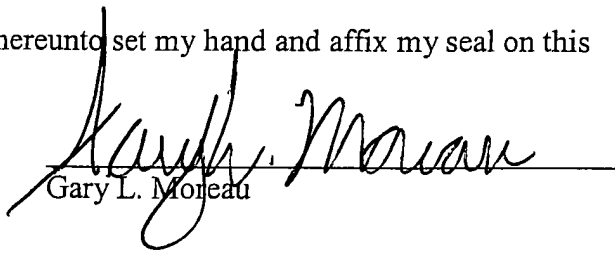 hereunto set my hand and affix my seal on this
Gary L. Moreau
Gary L. Moreau